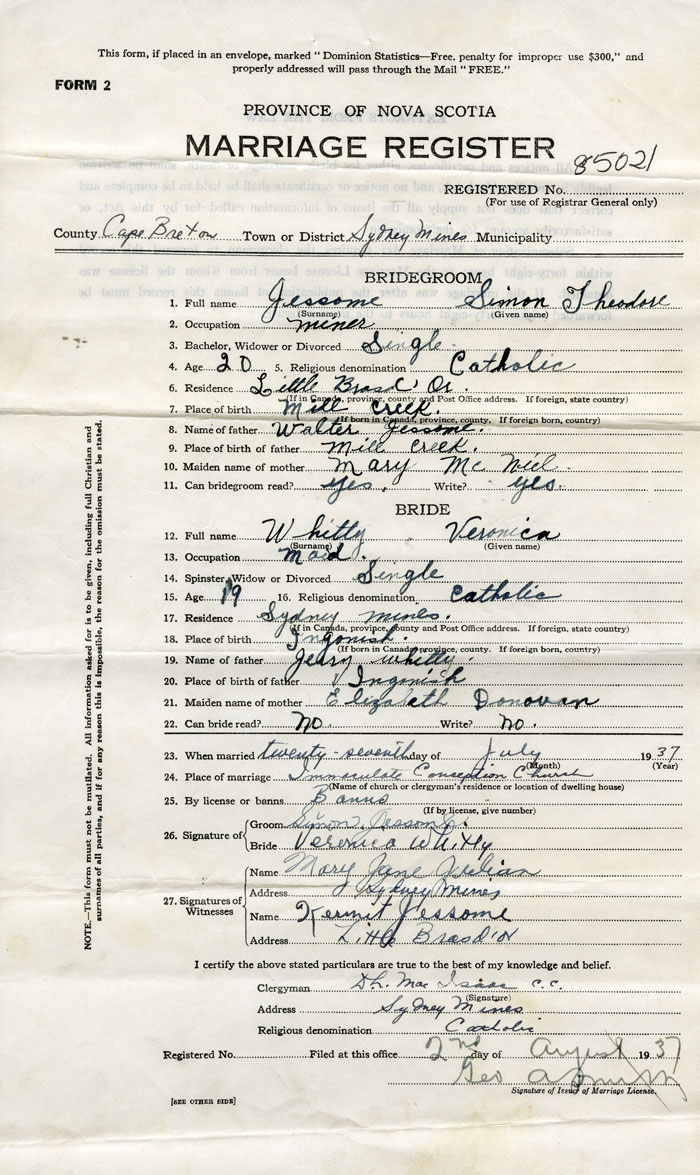 This form, if placed in an envelope, marked "Dominion Statistics—Free, penalty for improper use $300," and
properly addressed will pass through the Mail "FREE."
FORM 2
PROVINCE OF NOVA SCOTIA
MARRIAGE REGISTER
85021
REGISTERED No.
(For use of Registrar General only)
County Cape Breton Town or District Sydney Mines Municipality
BRIDEGROOM
1. Full name Jessome Simon Theodore
(Surname) (Given name)
2. Occupation miner
3. Bachelor, Widower or Divorced Single
4. Age 20 5. Religious denomination Catholic
6. Residence Little Brasd' Or.
(If in Canada, province, county and Post Office address. If foreign, state country)
7. Place of birth Mill Creek.
(If born in Canada, province, county. If foreign, country)
8. Name of father Walter Jessome.
9. Place of birth of father Mill Creek.
10. Maiden name of mother Mary Mc Niel.
11. Can bridegroom read? yes. Write? yes.
BRIDE
12. Full name Whitty Veronica
(Surname) (Given name)
13. Occupation Maid.
14. Spinster, Widow or Divorced Single
15. Age 19 16. Religious denomination Catholic
17. Residence Sydney mines.
(If in Canada, province, county and Post Office address. If foreign, state country)
18. Place of birth Ingonish.
(If born in Canada, province, county. If foreign, country)
19. Name of father Jerry whitty.
20. Place of birth of father Ingonish
21. Maiden name of mother Elizabeth Donovan
22. Can bride read? No. Write? No.
23. When married twenty-seventh day of July 1937
(Month) (Year)
24. Place of marriage Immaculate Conception Church
(Name of church or clergyman's residence or location of dwelling house)
25. By license or banns Banns
(If by license, give number)
26. Signature of
Groom Simon Jessome.
Bride Veronica Whitty
27. Signatures of Witnesses
Name Mary Jane Julian
Address Sydney Mines
Name Kermit Jessome
Address Little Brasd'or
I certify the above stated particulars are true to the best of my knowledge and belief.
Clergyman D.h. Mac Isaac c.c.
(Signature)
Address Sydney Mines
Religious denomination Catholic
Registered No. Filed at this office 2nd day of August 1937
Geo
Signature of Issuer of Marriage License.
[SEE OTHER SIDE]
NOTE.—This form must not be mutilated. All information asked for is to be given, including full Christian and
surnames of all parties, and if for any reason this is impossible, the reason for the omission must be stated.